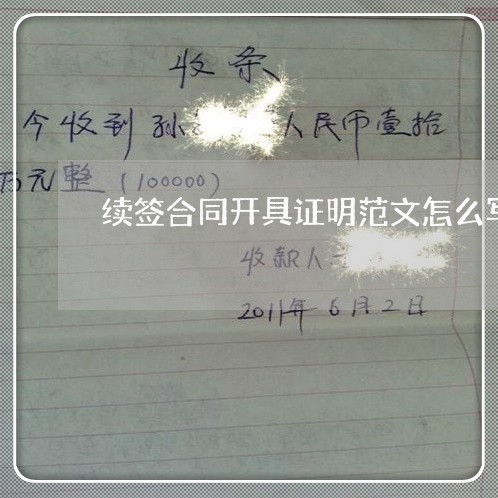 收条
今收到孙 人民币壹拾
万元整(100000)
续签合同开具证明范文怎么写
收款人
2011年6月2日